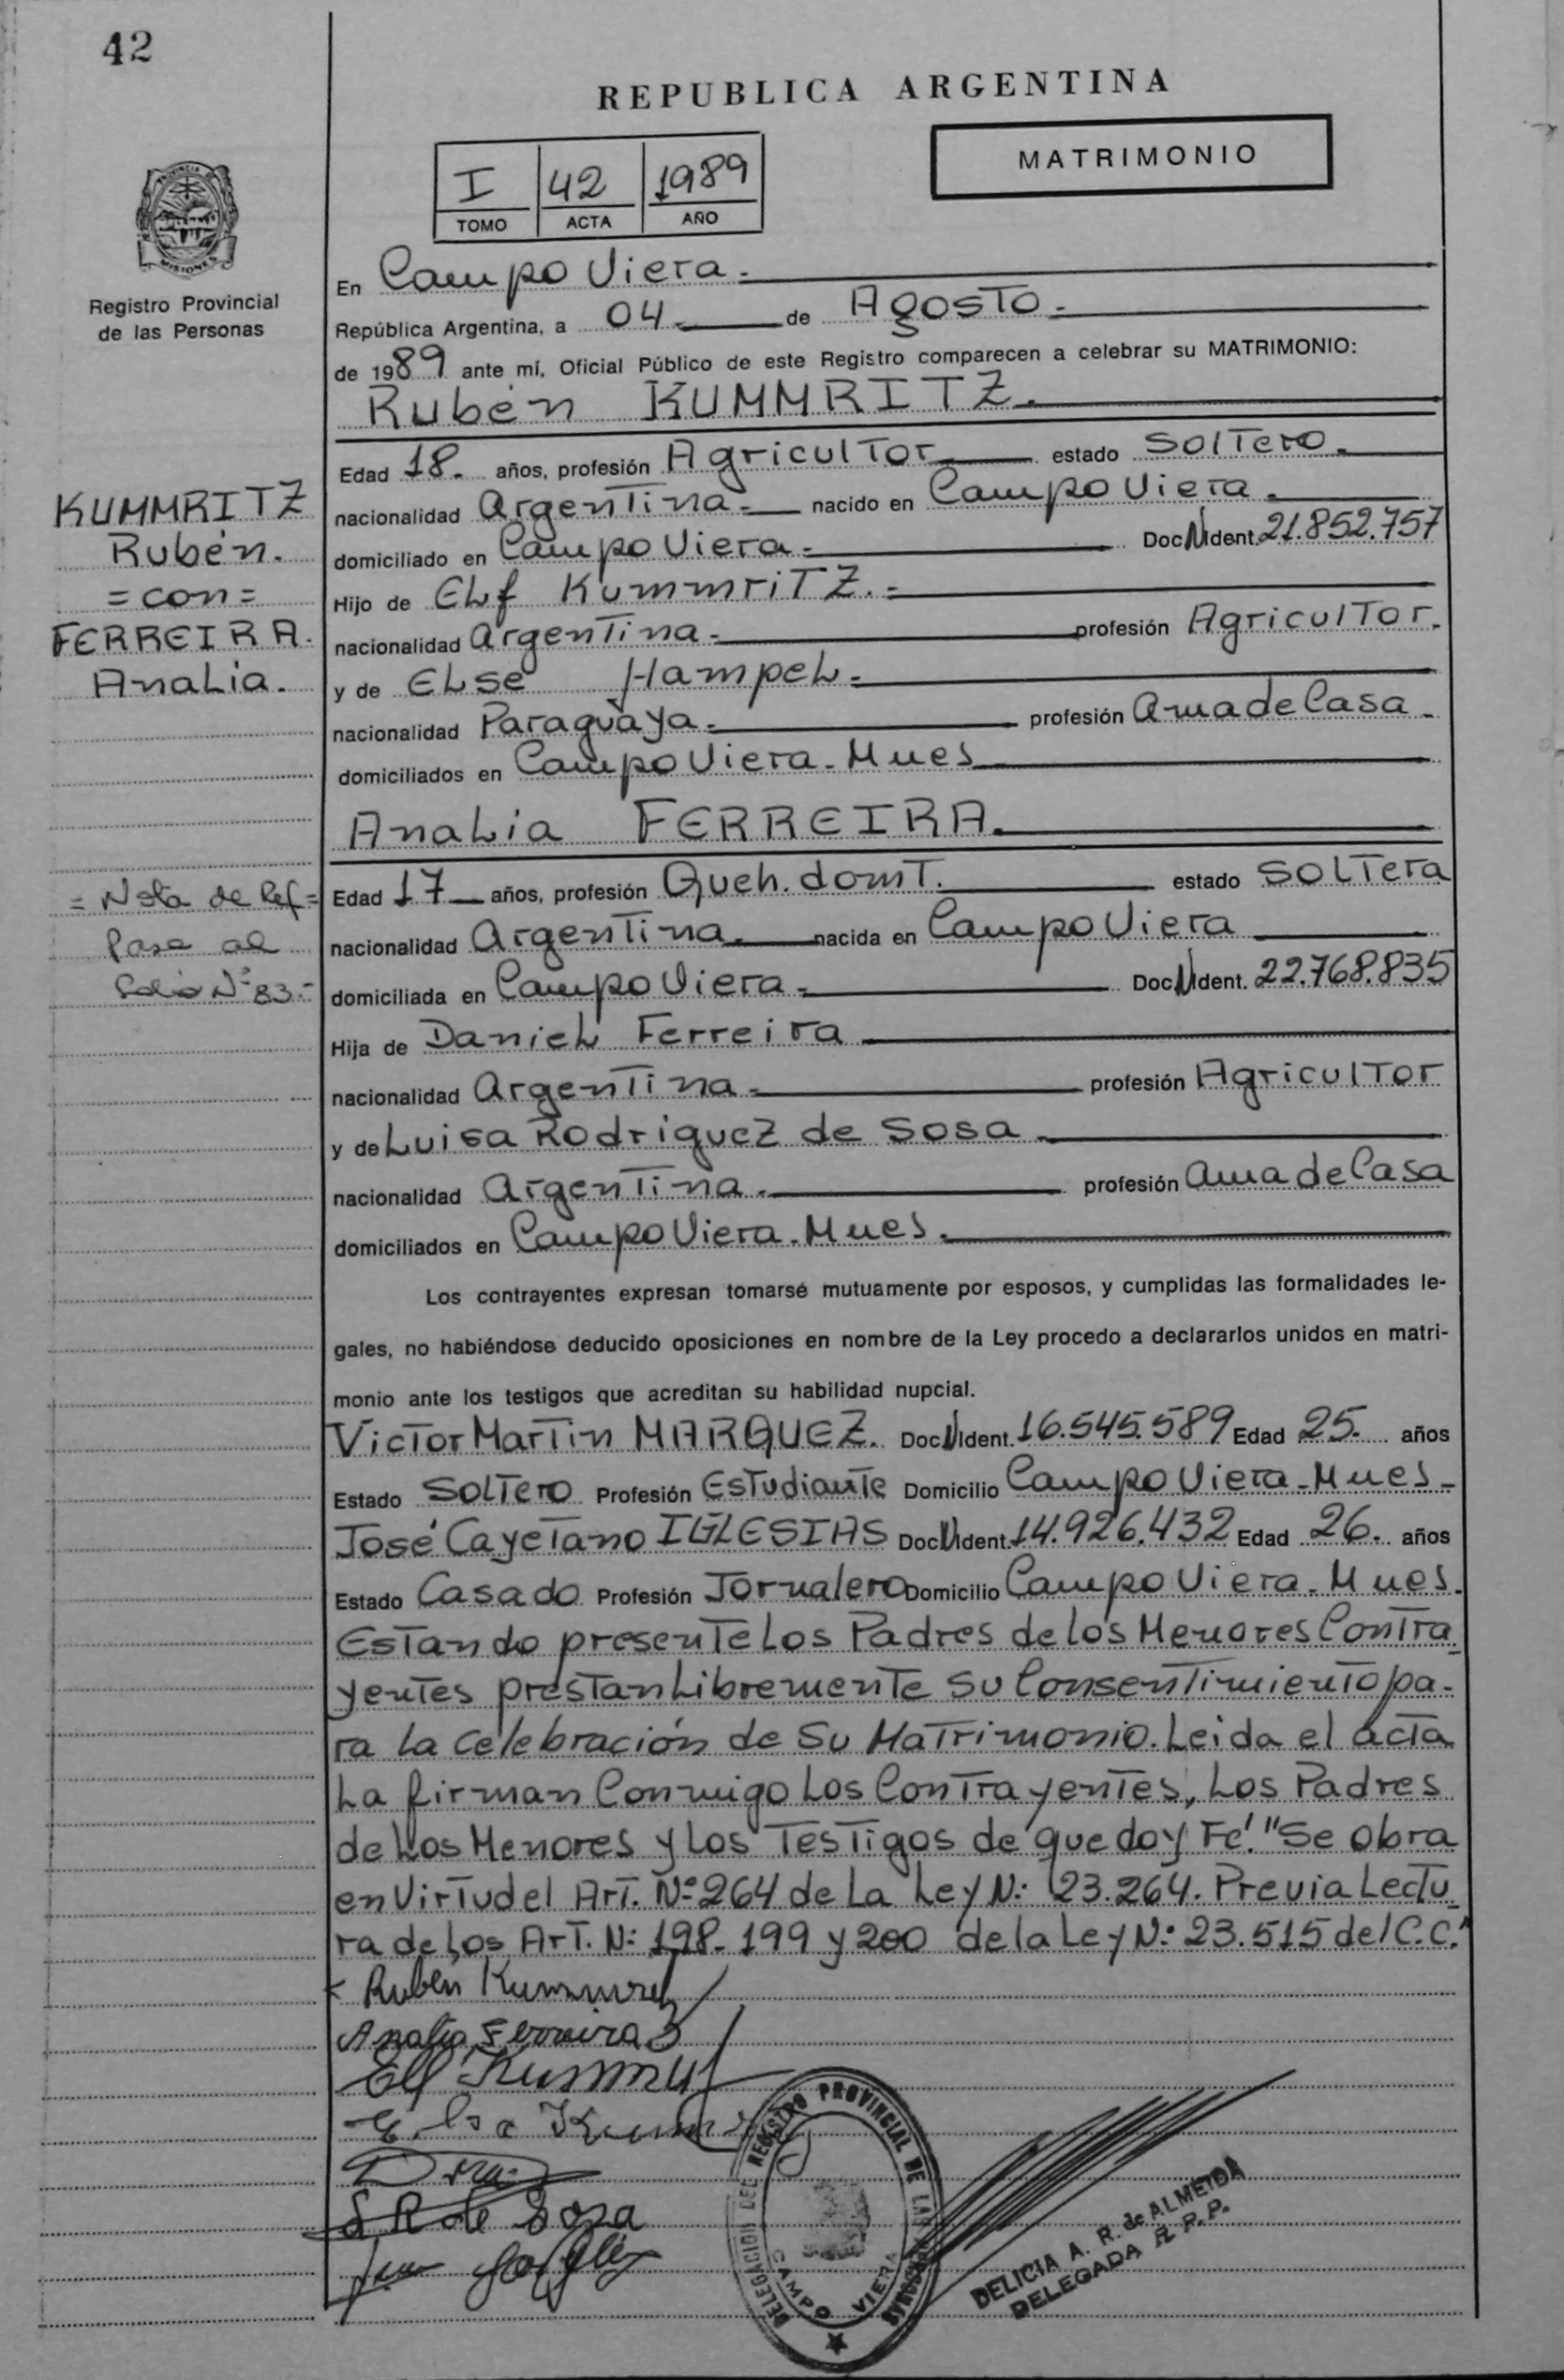 42
REPUBLICA ARGENTINA
MATRIMONIO
I 42 1989
TOMO ACTA AÑO
PROVINCIA DE
MISIONES
Registro Provincial
de las Personas
En Campo Viera.-
República Argentina, a 04.- de Agosto.-
de 1989 ante mí, Oficial Público de este Registro comparecen a celebrar su MATRIMONIO:
Rubén KUMMRITZ.
Edad 18. años, profesión Agricultor estado Soltero.
nacionalidad Argentina.- nacido en Campo Viera.
domiciliado en Campo Viera.- Doc N Ident. 21.852.757
Hijo de Elf Kummritz.-
nacionalidad argentina.- profesión Agricultor.
y de Else Hampel.-
nacionalidad Paraguaya.- profesión Ama de Casa.
domiciliados en Campo Viera-Mnes
KUMMRITZ
Rubén.
=con=
FERREIRA.
Analia.
Analia FERREIRA.
Edad 17 años, profesión Queh. domt. estado Soltera
nacionalidad Argentina. nacida en Campo Viera
domiciliada en Campo Viera.- Doc N Ident. 22.768.835
Hija de Daniel Ferreira
nacionalidad Argentina.- profesión Agricultor
y de Luisa Rodriguez de Sosa.
nacionalidad Argentina. profesión Ama de Casa
domiciliados en Campo Viera-Mnes.
= Nota de Ref =
Pasa al
Folio Nº 83.-
Los contrayentes expresan tomarse mutuamente por esposos, y cumplidas las formalidades le-
gales, no habiéndose deducido oposiciones en nombre de la Ley procedo a declararlos unidos en matri-
monio ante los testigos que acreditan su habilidad nupcial.
Victor Martin MARQUEZ. Doc N Ident. 16.545.589 Edad 25. años
Estado Soltero Profesión Estudiante Domicilio Campo Viera-Mnes-
José Cayetano IGLESIAS Doc N Ident. 14.926.432 Edad 26. años
Estado Casado Profesión Jornalero Domicilio Campo Viera-Mnes.
Estando presente Los Padres de los Menores Contra
yentes prestan Libremente su Consentimiento pa-
ra la celebración de su Matrimonio. Leida el acta
La firman Conmigo Los Contrayentes, Los Padres
de Los Menores y Los Testigos de que doy Fé. "Se obra
en Virtud el Art. Nº 264 de La Ley N: 23.264. Previa Lectu
ra de los Art. N: 198-199 y 200 de la Ley N: 23.515 del C.C."
Rubén Kummritz
Analia Ferreira
Elf Kummritz
Elsa
L R de Sosa
DELEGACION DEL REGISTRO PROVINCIAL DE LAS PERSONAS
CAMPO VIERA
DELICIA A. R. de ALMEIDA
DELEGADA R. P. P.